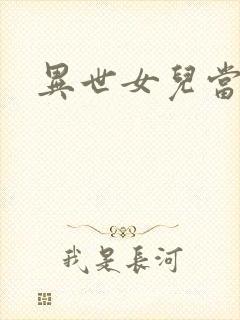 異世女兒當
我是長河